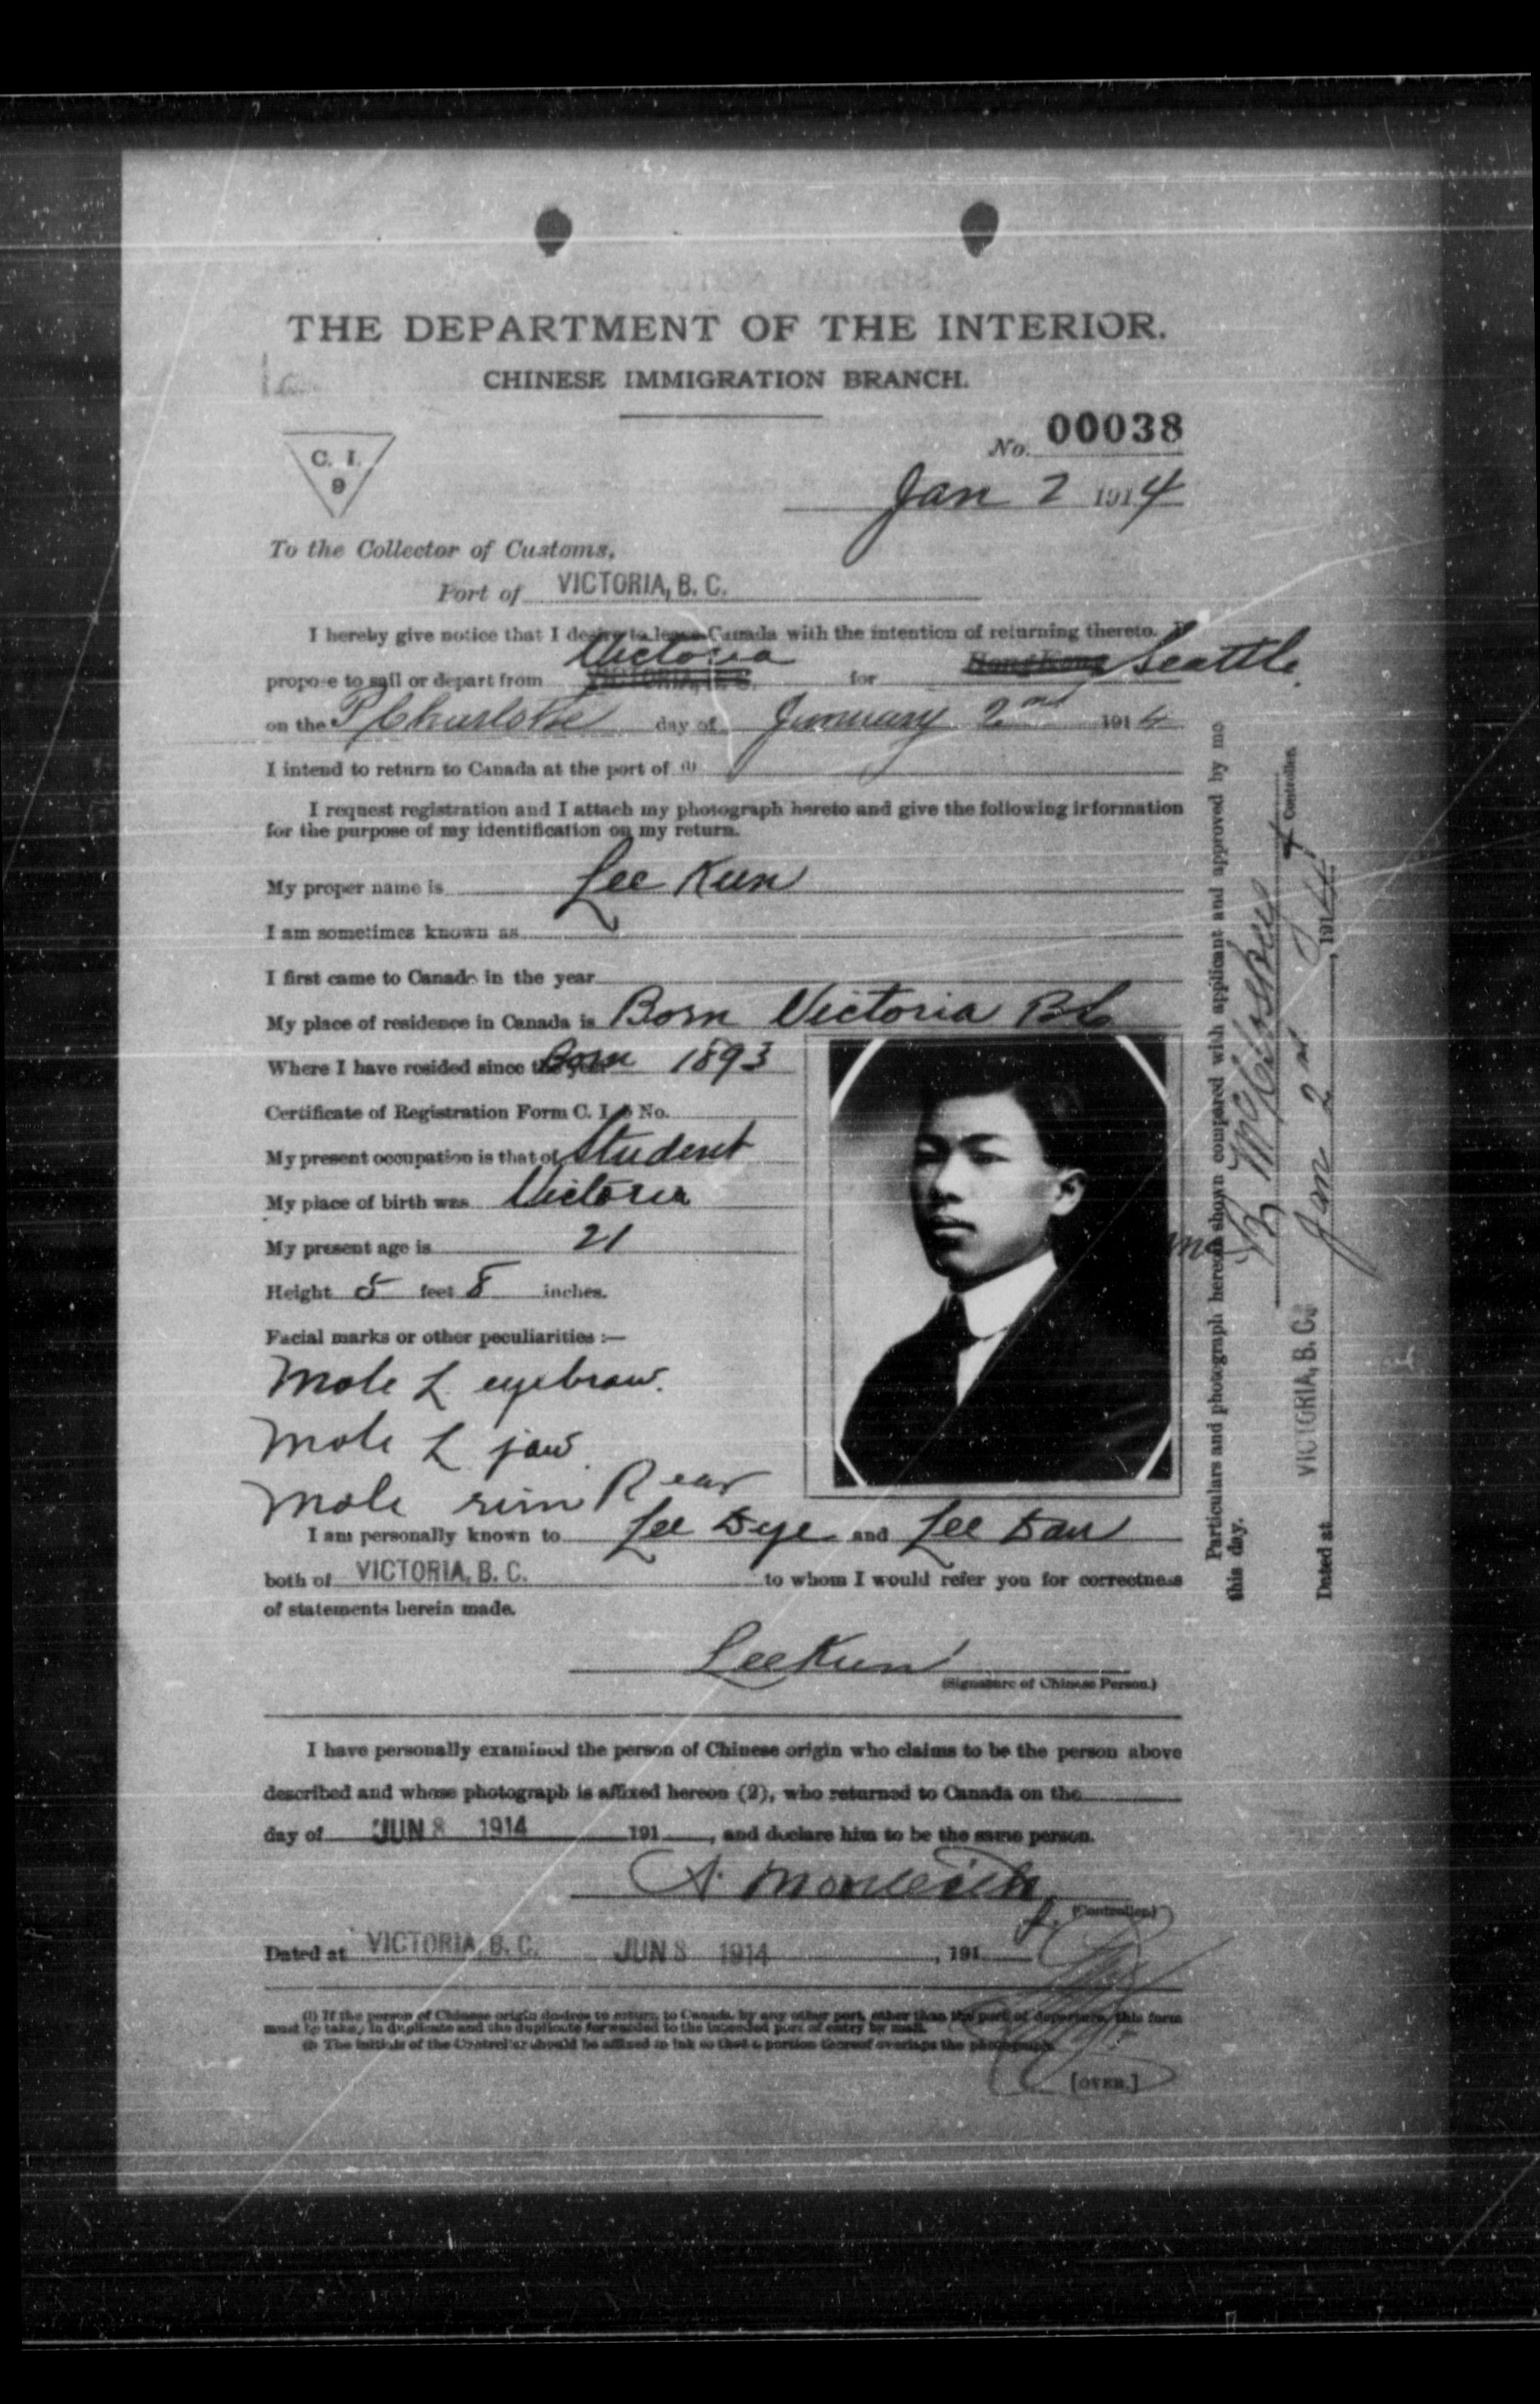 THE DEPARTMENT OF THE INTERIOR.
CHINESE IMMIGRATION BRANCH.
No. 00038
C. I.
9
Jan 2 1914
To the Collector of Customs,
Port of VICTORIA, B. C.
I hereby give notice that I desire to leave Canada with the intention of returning thereto. I
Victoria
propose to sail or depart from VICTORIA, B. C. for HongKong Seattle
on the P/Charlotte day of January 2nd 1914
I intend to return to Canada at the port of (1)
I request registration and I attach my photograph hereto and give the following information
for the purpose of my identification on my return.
My proper name is Lee Kun
I am sometimes known as
I first came to Canada in the year
My place of residence in Canada is Born Victoria BC
Where I have resided since the year Born 1893
Certificate of Registration Form C. I. 5 No.
My present occupation is that of Student
My place of birth was Victoria
My present age is 21
Height 5 feet 8 inches.
Facial marks or other peculiarities :—
Mole L eyebrow.
Mole L jaw.
Mole rim R ear
I am personally known to Lee Dye and Lee Dan
both of VICTORIA, B. C. to whom I would refer you for correctness
of statements herein made.
Lee Kun
(Signature of Chinese Person.)
I have personally examined the person of Chinese origin who claims to be the person above
described and whose photograph is affixed hereon (2), who returned to Canada on the
day of JUN 8 1914 191 , and declare him to be the same person.
A. Monteith
(Controller.)
Dated at VICTORIA, B. C. JUN 8 1914 , 191
(1) If the person of Chinese origin desires to return to Canada by any other port, other than the port of departure, this form
must be taken in duplicate and the duplicate forwarded to the intended port of entry by mail.
(2) The initials of the Controller should be affixed in ink so that a portion thereof overlaps the photograph.
[OVER.]
Particulars and photograph hereon shown compared with applicant and approved by me
this day.
McCloskey
Controller.
Dated at VICTORIA, B. C. Jan 2nd , 1914